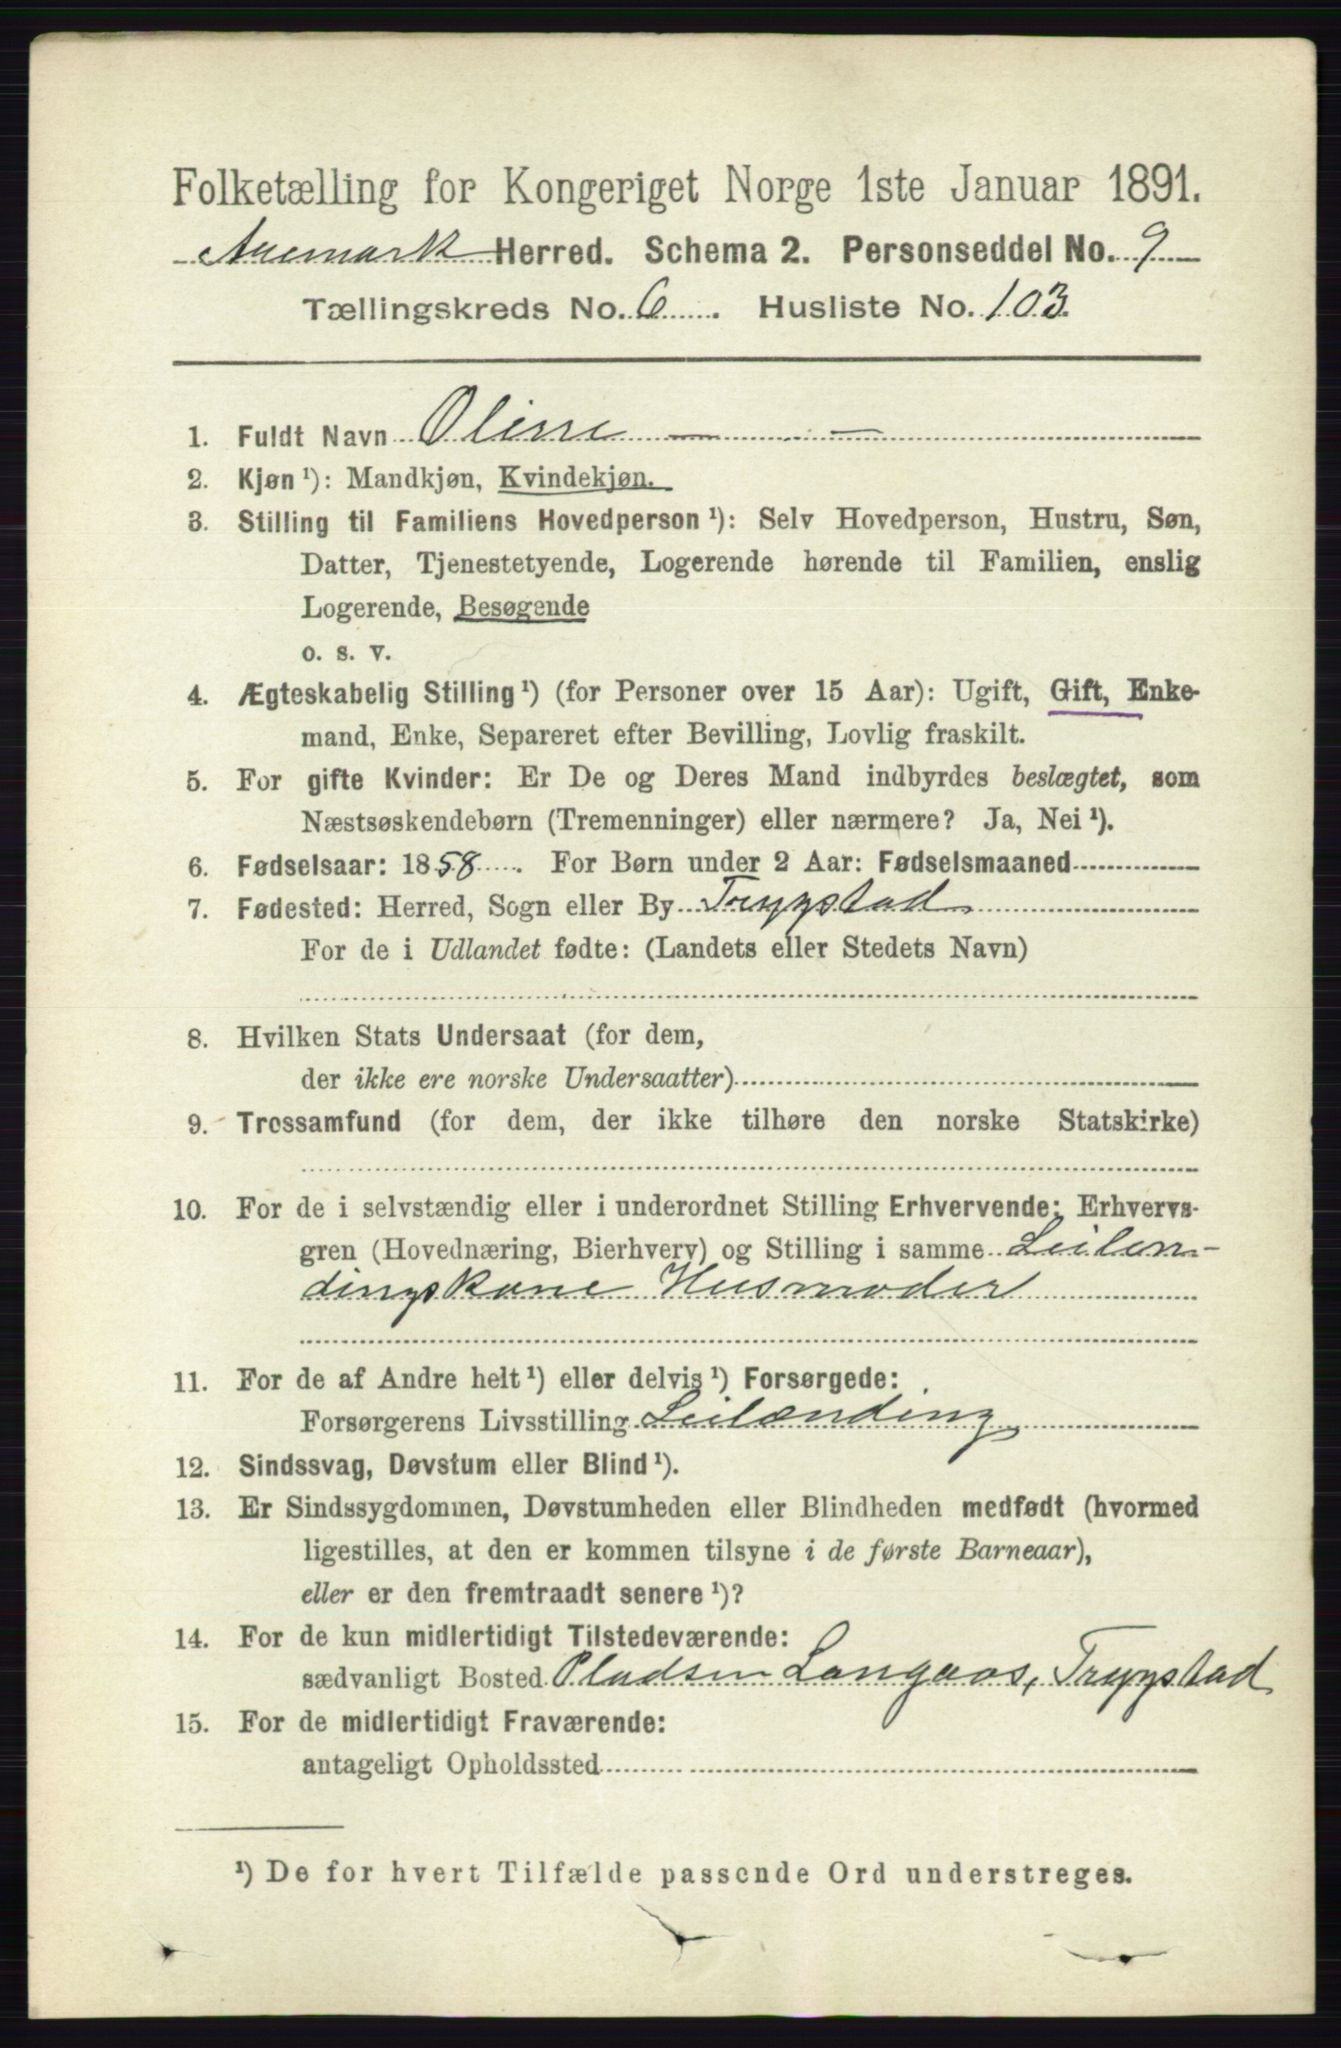 Folketælling for Kongeriget Norge 1ste Januar 1891.
Aremark Herred. Schema 2. Personseddel No. 9
Tællingskreds No. 6. Husliste No. 103.
1. Fuldt Navn Olisse — —
2. Kjøn ¹): Mandkjøn, Kvindekjøn.
3. Stilling til Familiens Hovedperson ¹): Selv Hovedperson, Hustru, Søn,
Datter, Tjenestetyende, Logerende hørende til Familien, enslig
Logerende, Besøgende
o. s. v.
4. Ægteskabelig Stilling ¹) (for Personer over 15 Aar): Ugift, Gift, Enke-
mand, Enke, Separeret efter Bevilling, Lovlig fraskilt.
5. For gifte Kvinder: Er De og Deres Mand indbyrdes beslægtet, som
Næstsøskendebørn (Tremenninger) eller nærmere? Ja, Nei ¹).
6. Fødselsaar: 1858. For Børn under 2 Aar: Fødselsmaaned
7. Fødested: Herred, Sogn eller By Trygstad
For de i Udlandet fødte: (Landets eller Stedets Navn)
8. Hvilken Stats Undersaat (for dem,
der ikke ere norske Undersaatter)
9. Trossamfund (for dem, der ikke tilhøre den norske Statskirke)
10. For de i selvstændig eller i underordnet Stilling Erhvervende: Erhvervs-
gren (Hovednæring, Bierhverv) og Stilling i samme Leilen-
dingskone Husmoder
11. For de af Andre helt ¹) eller delvis ¹) Forsørgede:
Forsørgerens Livsstilling Leilænding
12. Sindssvag, Døvstum eller Blind ¹).
13. Er Sindssygdommen, Døvstumheden eller Blindheden medfødt (hvormed
ligestilles, at den er kommen tilsyne i de første Barneaar),
eller er den fremtraadt senere ¹)?
14. For de kun midlertidigt Tilstedeværende:
sædvanligt Bosted Pladsen Langaas, Trygstad
15. For de midlertidigt Fraværende:
antageligt Opholdssted
¹) De for hvert Tilfælde passende Ord understreges.